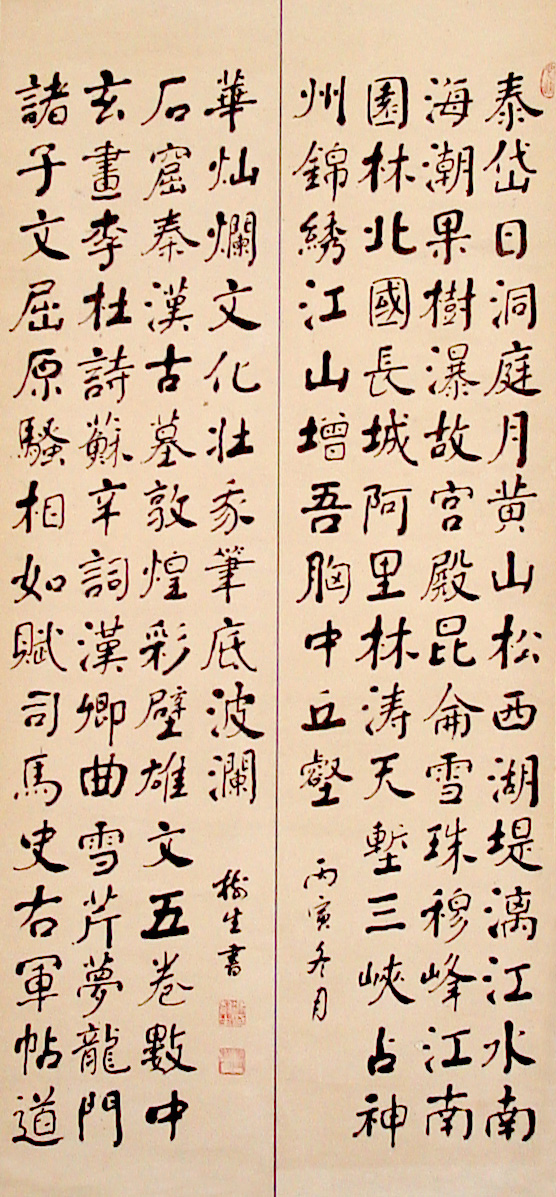 泰岱日洞庭月黄山松西湖堤漓江水南
海潮果樹瀑故宫殿昆侖雪珠穆峰江南
園林北國長城阿里林涛天塹三峽占神
州錦綉江山增吾胸中丘壑
丙寅冬月
諸子文屈原騷相如賦司馬史右軍帖道
玄畫李杜詩蘇辛詞漢卿曲雪芹夢龍門
石窟秦漢古墓敦煌彩壁雄文五卷數中
華灿爛文化壮我筆底波瀾
樹生書